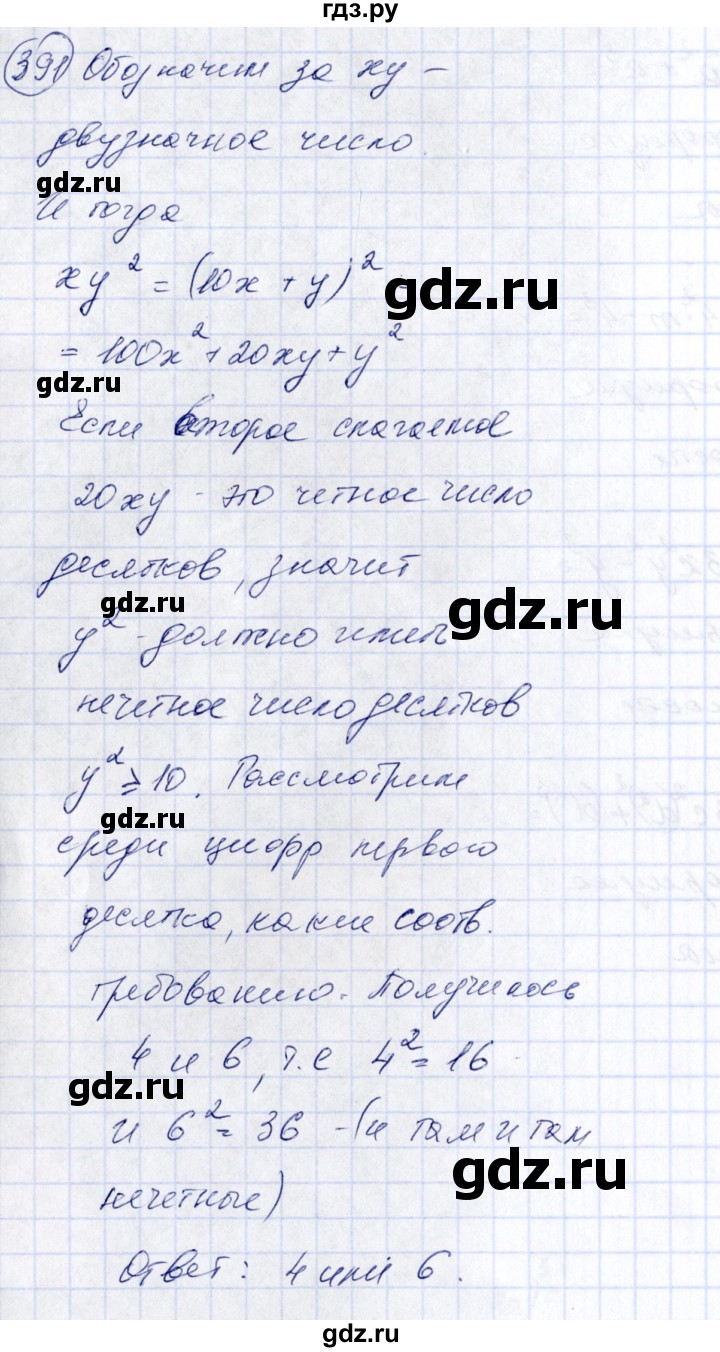 гдз.ру
391 Обозначим за xy –
двузначное число.
gdz.ru
И тогда
xy² = (10x + y)² =
gdz.ru
= 100x² + 20xy + y²
gdz.ru
Если второе слагаемое
20xy - это четное число
десятков, значит
gdz.ru
gdz.ru
y² - должно иметь
нечетное число десятков
y² ≥ 10. Рассмотрим
gdz.ru
gdz.ru
среди цифр первого
десятка, какие соотв.
gdz.ru
gdz.ru
требованию. Получилось
4 и 6, т.е 4² = 16
gdz.ru
и 6² = 36 - (и там и там
gdz.ru
нечетные)
gdz.ru
Ответ: 4 или 6.
gdz.ru
gdz.ru
gdz.ru